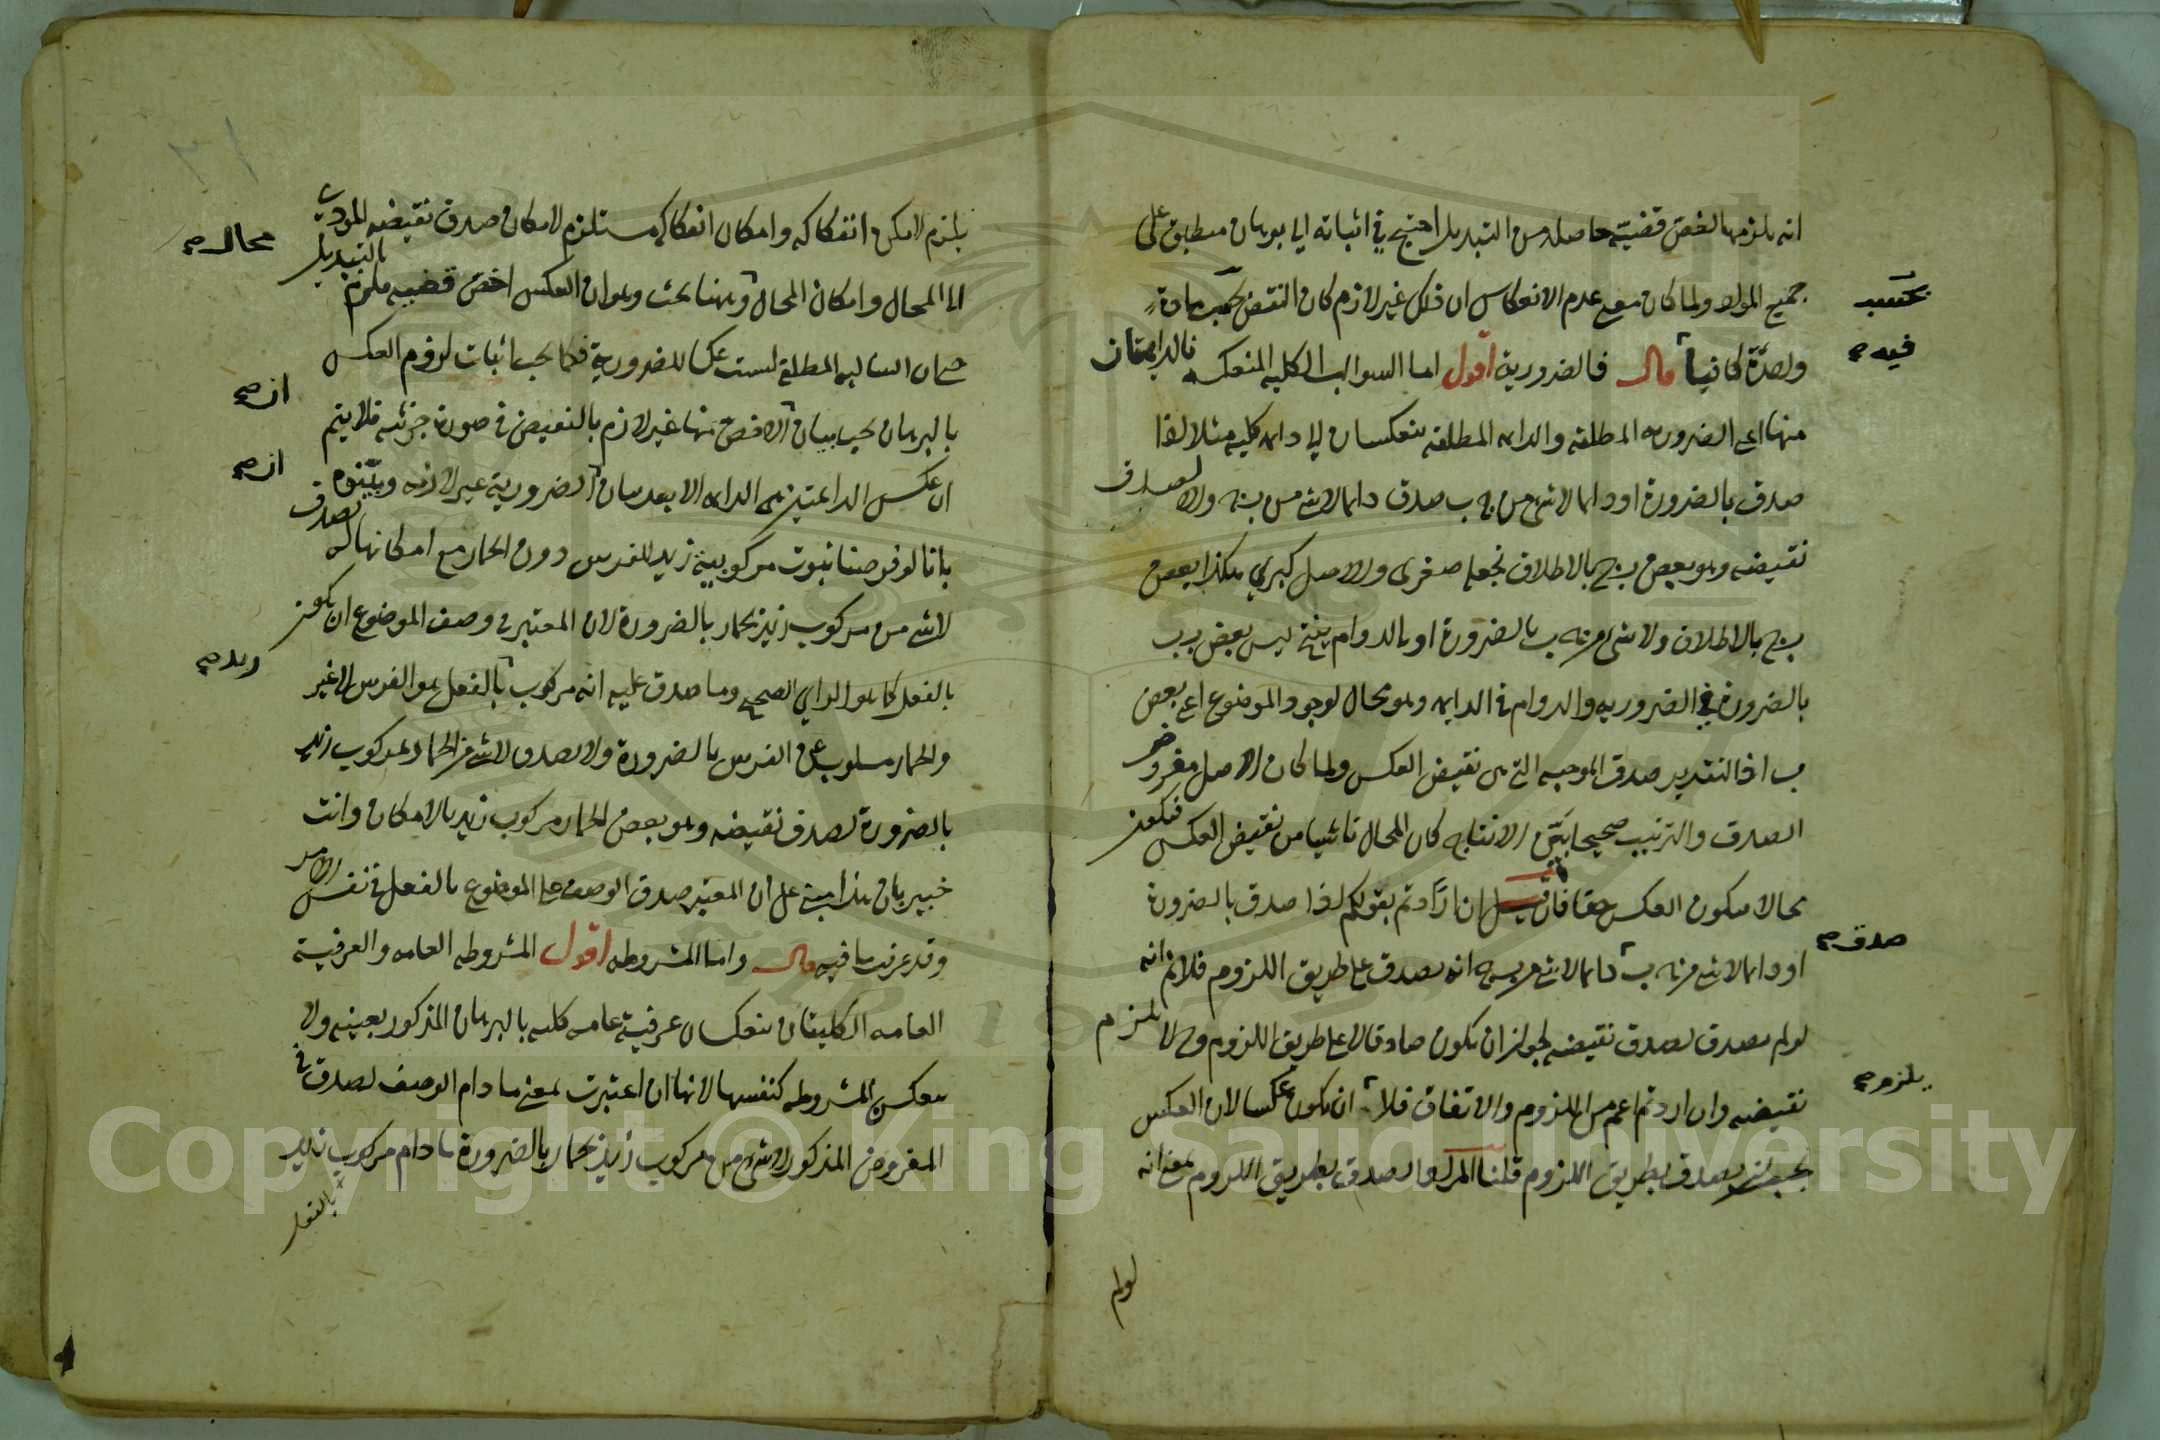 انه يلزمها اخص قضية حاصلة من التبديل احتيج في اثباته الى برهان منطبق على
جميع المواد ولما كان معنى عدم الانعكاس ان ذلك غير لازم كان النقض بحسب مادة
بحسب
واحدة كافيا قال فالضرورية اقول اما السوالب الكلية المنعكسة فالدايمتان
فيه صح
منها اعنى الضروريه المطلقه والدايمه المطلقه ينعكسان الى دايمه كليه مثلا اذا
صدق بالضرورة او دايما لاشئ من ج ب صدق دايما لاشئ من ب ج والا لصدق
نقيضه وهو بعض ب ج بالاطلاق نجعله صغرى والاصل كبرى هكذا بعض
ب ج بالاطلاق ولاشئ من ج ب بالضرورة او بالدوام ينتج ليس بعض ب ب
بالضرورة في الضروريه والدوام في الدايمه وهو محال لوجود الموضوع اعنى بعض
ب اذ التقدير صدق الموجبه التى هى نقيض العكس ولما كان الاصل مفروض
الصدق والترتيب صحيحا بين الانتاج كان المحال ناشيا من نقيض العكس فيكون
محالا فيكون العكس حقا فان قيل ان اردتم بقولكم اذا صدق بالضرورة
او دايما لاشئ من ج ب دايما لاشئ من ب ج انه يصدق على طريق اللزوم فلانم انه
صدق صح
لو لم يصدق لصدق نقيضه لجواز ان يكون صادقا لا على طريق اللزوم وح لا يلزم
نقيضه وان اردتم اعم من اللزوم والاتفاق فلانم ان يكون عكسا لان العكس
يلزم صح
يجب ان يصدق بطريق اللزوم قلنا المراد الصدق بطريق اللزوم بمعنى انه
لو لم
يلزم لامكن انفكاكه وامكان انفكاكه مستلزم لامكان صدق نقيضه المودى
الى المحال وامكان المحال محال وههنا بحث وهو ان العكس اخص قضيه يلزم بالتبديل
محال صح
السالبه المطلقة ليست عكسا للضرورية فكما يجب اثبات لزوم العكس
بالبرهان يجب بيان ان الاخص منها غير لازم بالنقيض في صورة جزئيه فلا يتم
ان صح
ان عكس الدايمتين هى الدايمه الا بعد بيان ان الضرورية غير لازمه وبينوه
ان صح
بانا لو فرضنا ثبوت مركوبية زيد للفرس دون الحمار مع امكانها له لصدق
لاشئ من مركوب زيد بحمار بالضرورة لان المعتبر في وصف الموضوع ان يكون
بالفعل كما هو الراى الصحيح وما صدق عليه انه مركوب زيد بالفعل هو الفرس لا غير
زيد صح
والحمار مسلوب عن الفرس بالضرورة ولا يصدق لاشئ من الحمار بمركوب زيد
بالضرورة لصدق نقيضه وهو بعض الحمار مركوب زيد بالامكان وانت
خبير بان هذا مبنى على ان المعتبر صدق الوصف على الموضوع بالفعل في نفس الامر
وقد عرفت ما فيه قال واما المشروطه اقول المشروطه العامه والعرفية
العامه الكليتان ينعكسان عرفية عامه كليه بالبرهان المذكور بعينه ولا
ينعكس المشروطه كنفسها لانها ان اعتبرت بمعنى ما دام الوصف لصدق في
المفروض المذكور لاشئ من مركوب زيد بحمار بالضرورة ما دام مركوب زيد
بالفعل